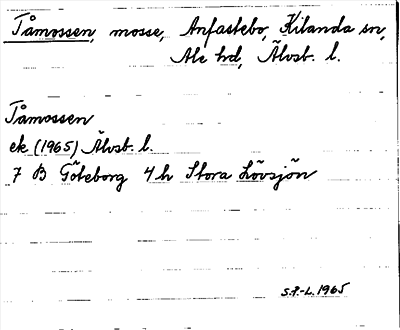 Tåmossen, mosse, Anfastebo, Kilanda sn,
Ale hd, Älvsb. l.
Tåmossen
ek (1965) Älvsb. l.
7 B Göteborg 4h Stora Lövsjön
S.F.-L. 1965